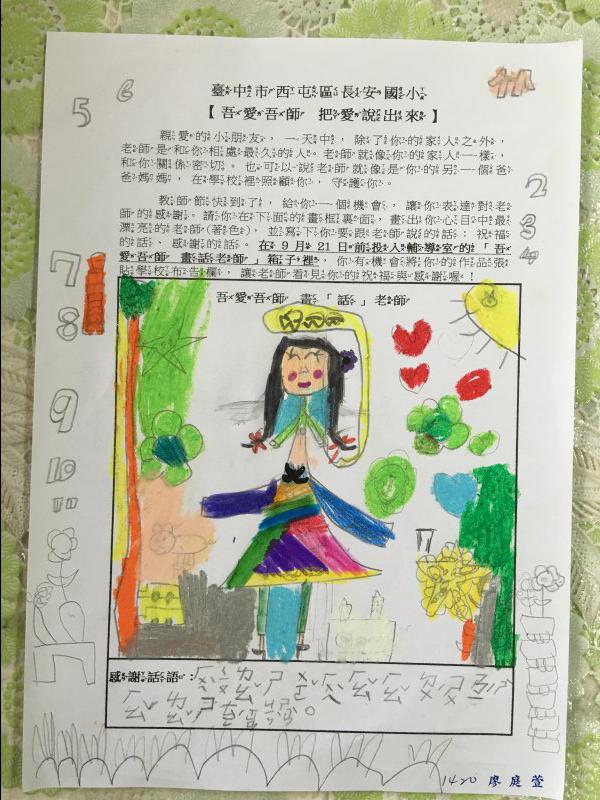 臺中市西屯區長安國小
【吾愛吾師 把愛說出來】
親愛的小朋友，一天中，除了你的家人之外，
老師是和你相處最久的人。老師就像你的家人一樣，
和你關係密切。也可以說老師就像是你的另一個爸
爸媽媽，在學校裡照顧你，守護你。
教師節快到了，給你一個機會，讓你表達對老
師的感謝。請你在下面的畫框裏面，畫出你心目中最
漂亮的老師(著色)，並寫下你要跟老師說的話：祝福
的話、感謝的話。在9月21日前投入輔導室的「吾
愛吾師 畫話老師」箱子裡，你有機會將你的作品張
貼學校布告欄，讓老師看見你的祝福與感謝喔！
吾愛吾師 畫「話」老師
5
6
2
3
4
7
8
9
10
11
感謝話語：
1420 廖庭萱